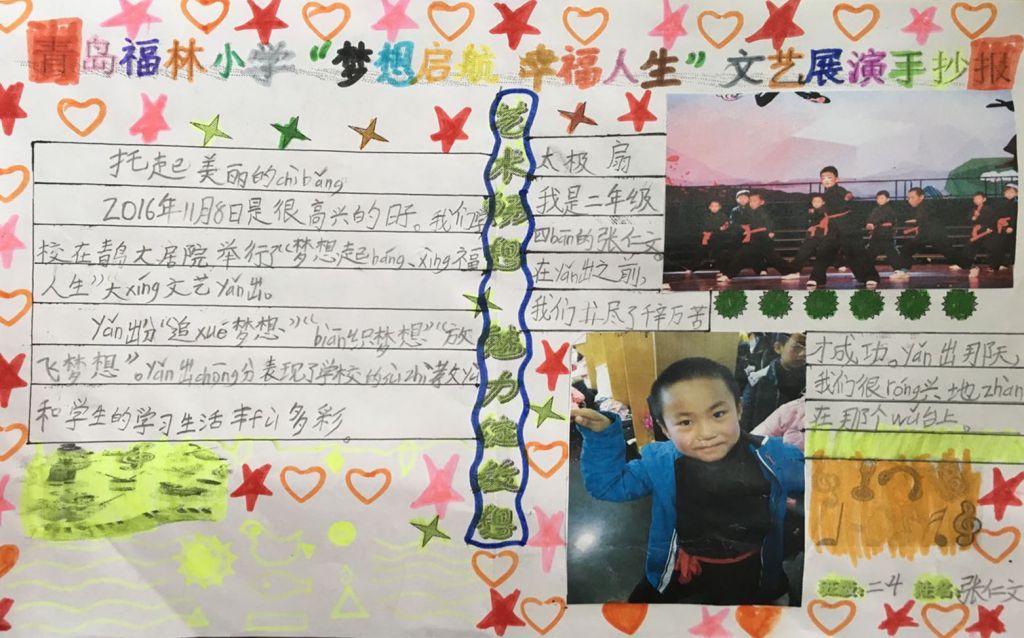 青岛福林小学“梦想启航 幸福人生”文艺展演手抄报
托起美丽的chìbǎng
2016年11月8日是很高兴的日子。我们学
校在青岛大居院举行了“梦想起háng、xìng福
人生”大xíng文艺yǎn出。
yǎn出分“追xué梦想”“biān织梦想”“放
飞梦想”。yǎn出chōng分表现了学校的
和学生的学习生活丰富多彩。
艺术
魅力
太极扇
我是二年级
四bān的张仁文
在yǎn出之前,
我们 尽了千辛万苦
才成功。yǎn出那天
我们很róng兴地zhàn
在那个wǔ台上。
班级:二4 姓名:张仁文